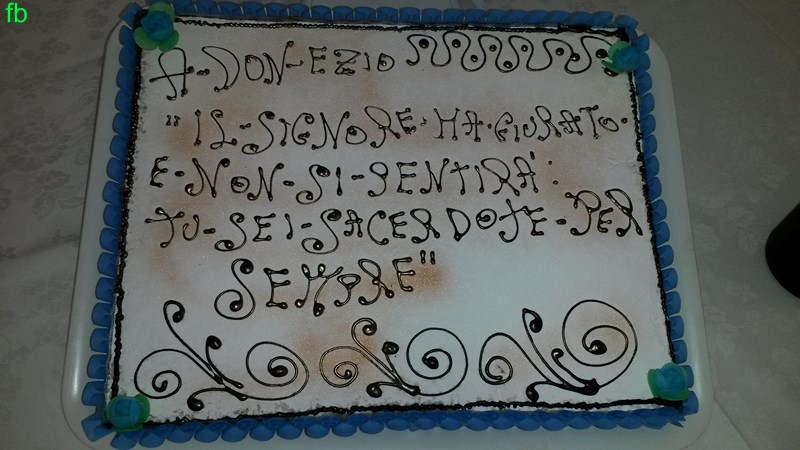 fb
A-DON-EZIO
"IL-SIGNORE-HA-GIURATO-
E-NON-SI-PENTIRÀ:
TU-SEI-SACERDOTE-PER
SEMPRE"